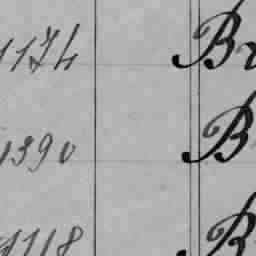 1174 Br
1390 B
1118 B